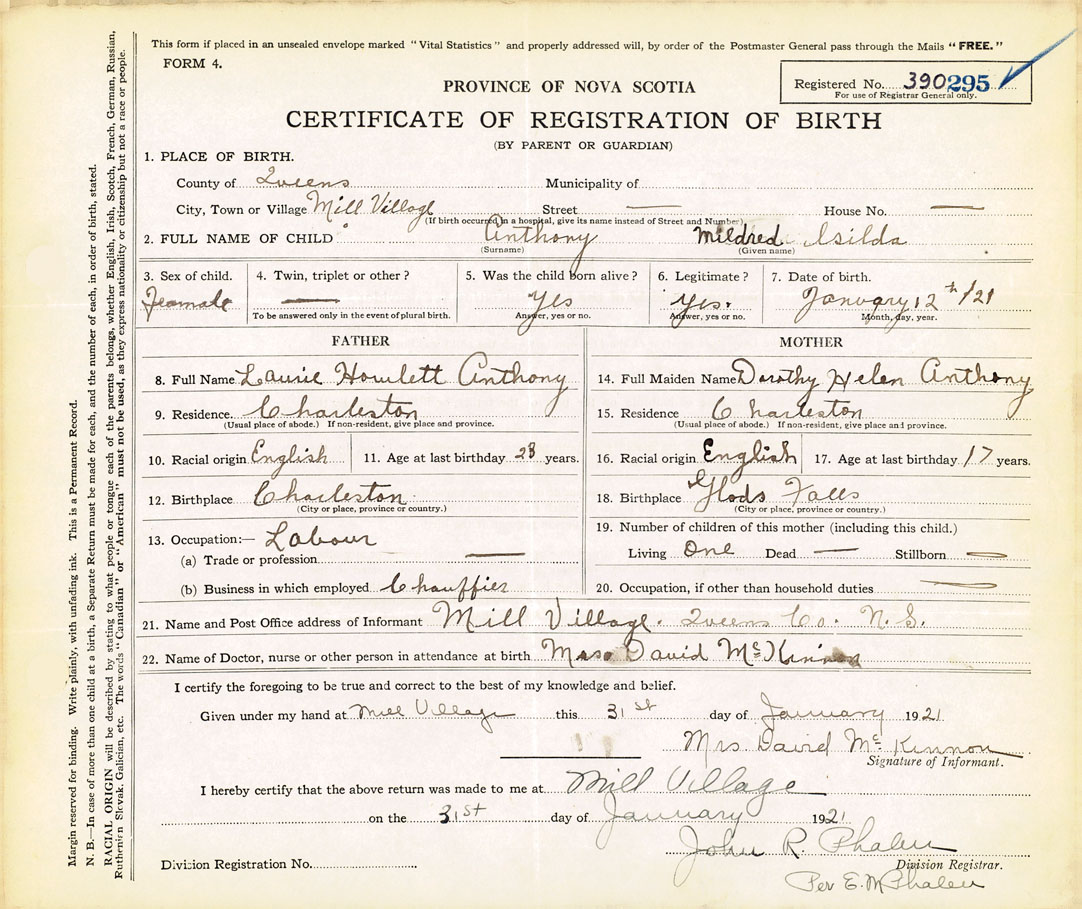 This form if placed in an unsealed envelope marked "Vital Statistics" and properly addressed will, by order of the Postmaster General pass through the Mails "FREE."
FORM 4.
Registered No. 390295
For use of Registrar General only.
PROVINCE OF NOVA SCOTIA
CERTIFICATE OF REGISTRATION OF BIRTH
(BY PARENT OR GUARDIAN)
1. PLACE OF BIRTH.
County of Queens Municipality of
City, Town or Village Mill Village Street — House No. —
(If birth occurred in a hospital, give its name instead of Street and Number)
2. FULL NAME OF CHILD Anthony Mildred Isilda
(Surname) (Given name)
3. Sex of child. 4. Twin, triplet or other? 5. Was the child born alive? 6. Legitimate? 7. Date of birth.
Feamale — Yes Yes. January 12th /21
To be answered only in the event of plural birth. Answer, yes or no. Answer, yes or no. Month, day, year.
FATHER
8. Full Name Laurie Howlett Anthony
9. Residence. Charleston
(Usual place of abode.) If non-resident, give place and province.
10. Racial origin English 11. Age at last birthday 23 years.
12. Birthplace Charleston
(City or place, province or country.)
13. Occupation:— Labour
(a) Trade or profession —
(b) Business in which employed Chauffier
MOTHER
14. Full Maiden Name Dorothy Helen Anthony
15. Residence Charleston
(Usual place of abode.) If non-resident, give place and province.
16. Racial origin English 17. Age at last birthday 17 years.
18. Birthplace Glods Falls
(City or place, province or country.)
19. Number of children of this mother (including this child.)
Living One Dead — Stillborn —
20. Occupation, if other than household duties —
21. Name and Post Office address of Informant Mill Village. Queens Co. N. S.
22. Name of Doctor, nurse or other person in attendance at birth Mrs David McKinnon
I certify the foregoing to be true and correct to the best of my knowledge and belief.
Given under my hand at Mill Village this 31st day of January 1921
Mrs David McKinnon
Signature of Informant.
I hereby certify that the above return was made to me at Mill Village
on the 31st day of January 1921
John R. Phalen
Division Registration No. Division Registrar.
Per E. M Phalen
Margin reserved for binding. Write plainly, with unfading ink. This is a Permanent Record.
N. B.—In case of more than one child at a birth, a Separate Return must be made for each, and the number of each, in order of birth, stated.
RACIAL ORIGIN will be described by stating to what people or tongue each of the parents belongs, whether English, Irish, Scotch, French, German, Russian,
Ruthenian Slovak, Galician, etc. The words "Canadian" or "American" must not be used, as they express nationality or citizenship but not a race or people.